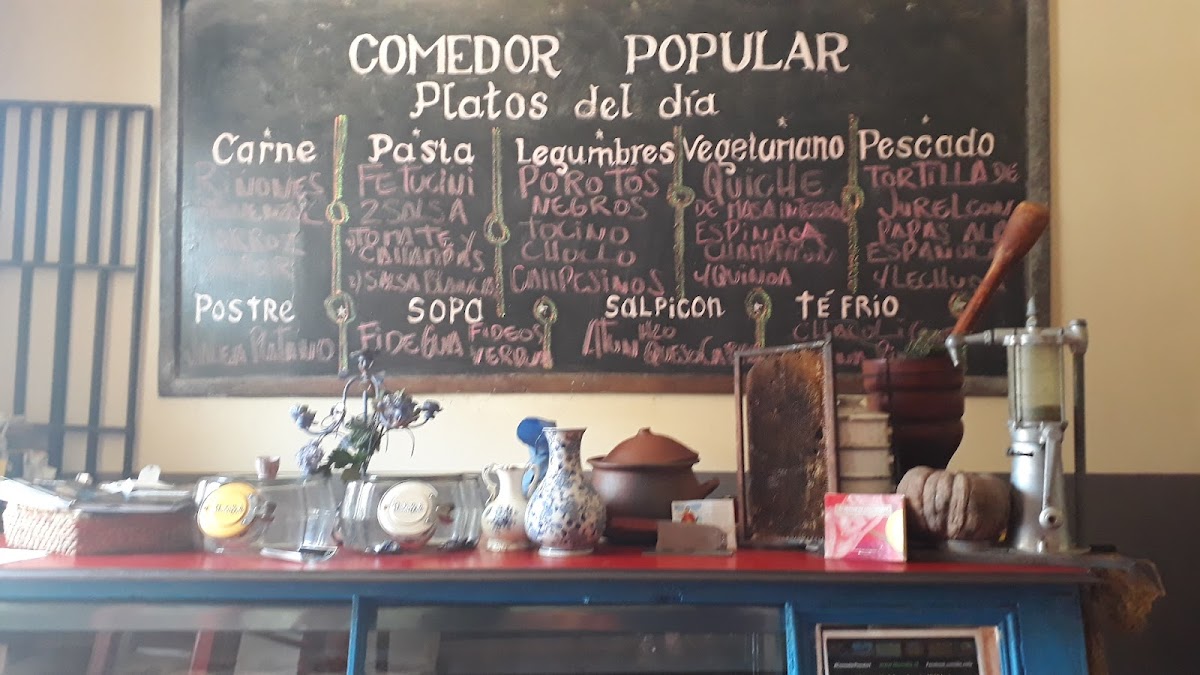 COMEDOR POPULAR
Platos del día
Carne
RIÑONES
ARROZ
Pasta
FETUCINI
2 SALSA
TOMATE Y
CALLAMPAS
Y SALSA BLANCA
Legumbres
POROTOS
NEGROS
TOCINO
CHOCLO
CAMPESINOS
Vegetariano
QUICHE
DE MASA INTEGRAL
ESPINACA
CHAMPIÑON
Y QUINOA
Pescado
TORTILLA DE
JUREL CON
PAPAS A LA
ESPAÑOLA
Y LECHUGA
Postre
PLATANO
SOPA
FIDEOS
VERDURA
SALPICON
ATUN HVO
QUESO
TÉ FRIO